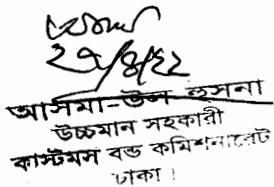 ২৯/৪/২২
আসমা-উল হুসনা
উচ্চমান সহকারী
কাস্টমস বন্ড কমিশনারেট
ঢাকা।